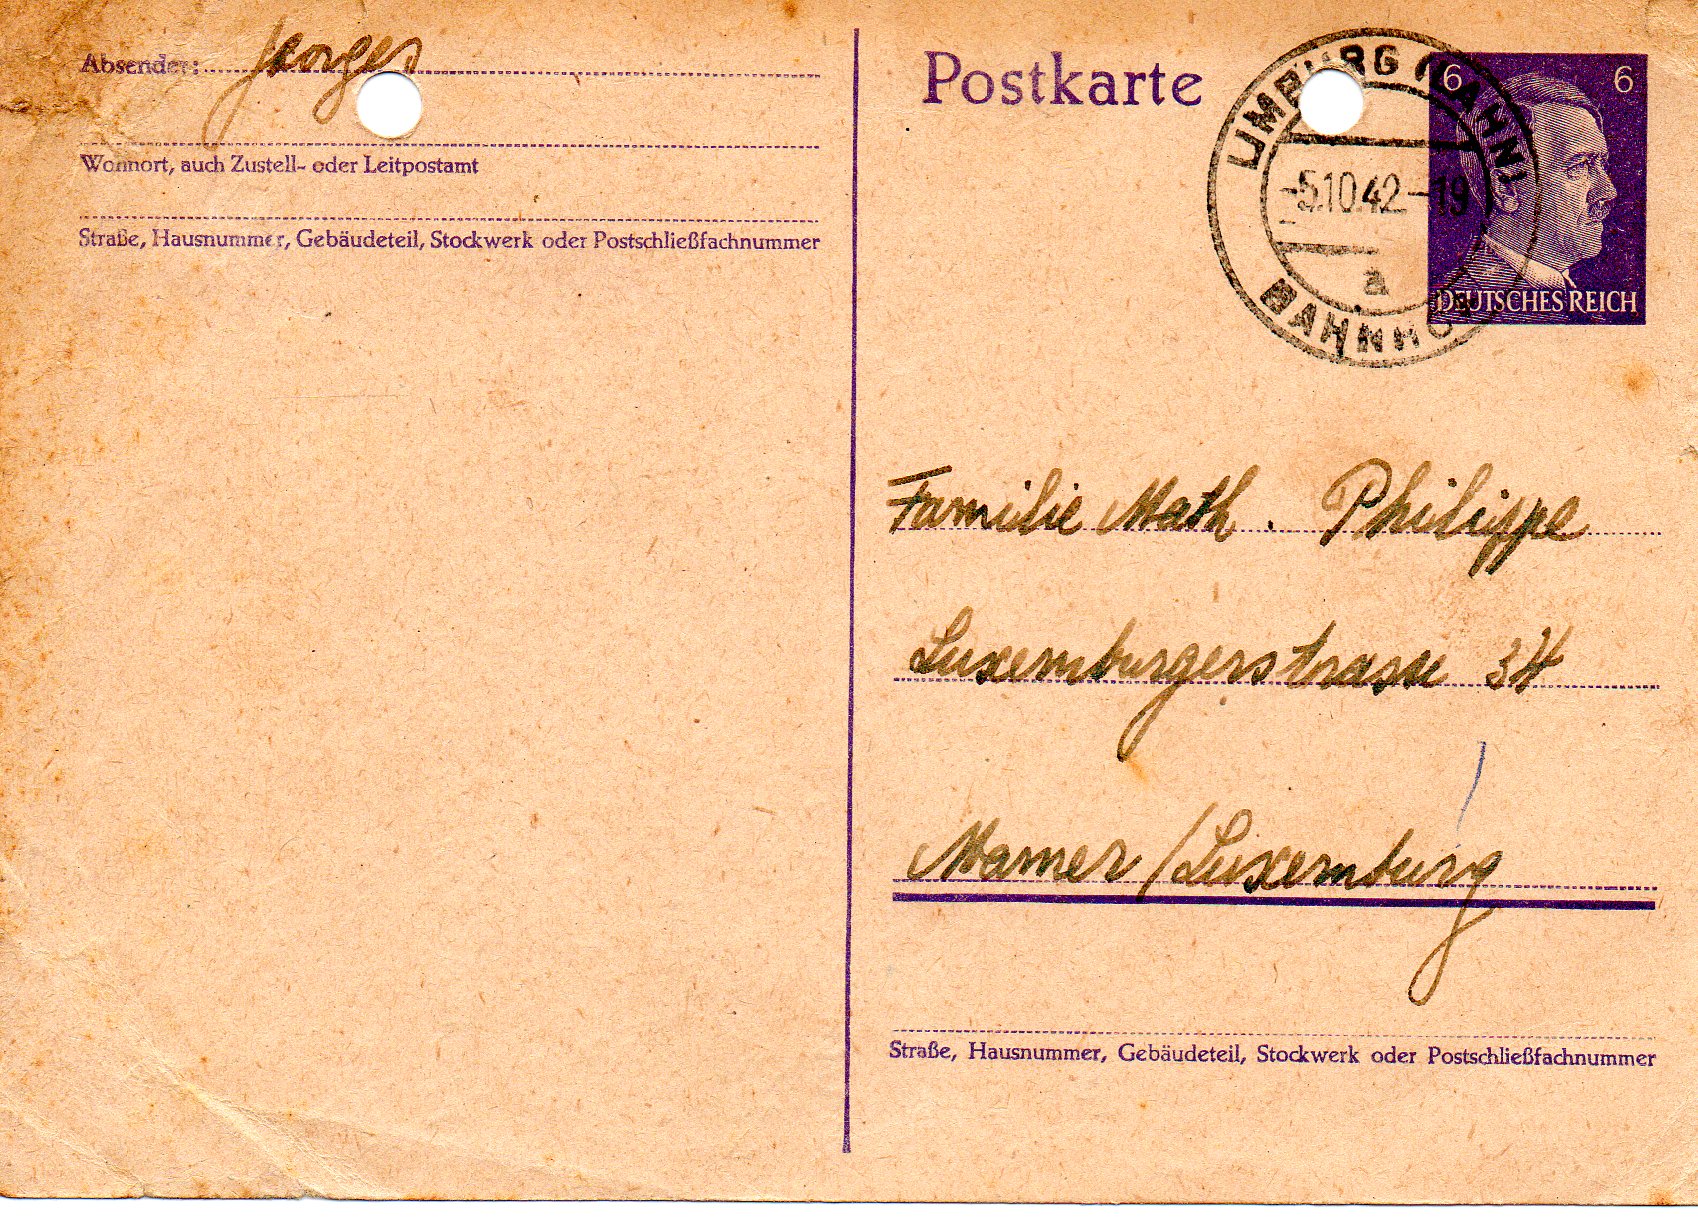 Absender: Georges
Wohnort, auch Zustell- oder Leitpostamt
Straße, Hausnummer, Gebäudeteil, Stockwerk oder Postschließfachnummer
Postkarte
LIMBURG (LAHN)
-5.10.42-19
a
BAHNHOF
6 6
DEUTSCHES REICH
Familie Math. Philippe
Luxemburgerstrasse 34
Mamer / Luxemburg
Straße, Hausnummer, Gebäudeteil, Stockwerk oder Postschließfachnummer